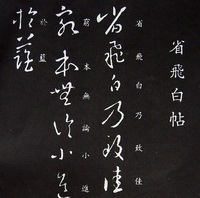 省飛白帖
省飛白乃致佳
省飛白乃致佳
窮本無論小進
窮本無論小進
於藍
於藍